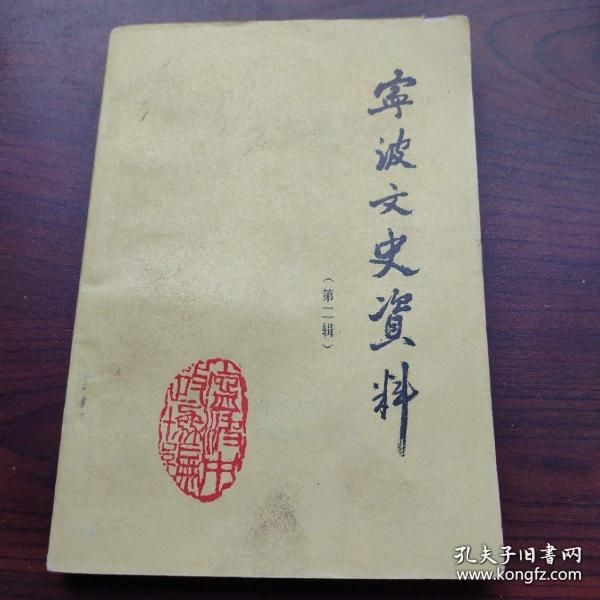 寧波文史资料
（第二辑）
孔夫子旧書网
www.kongfz.com